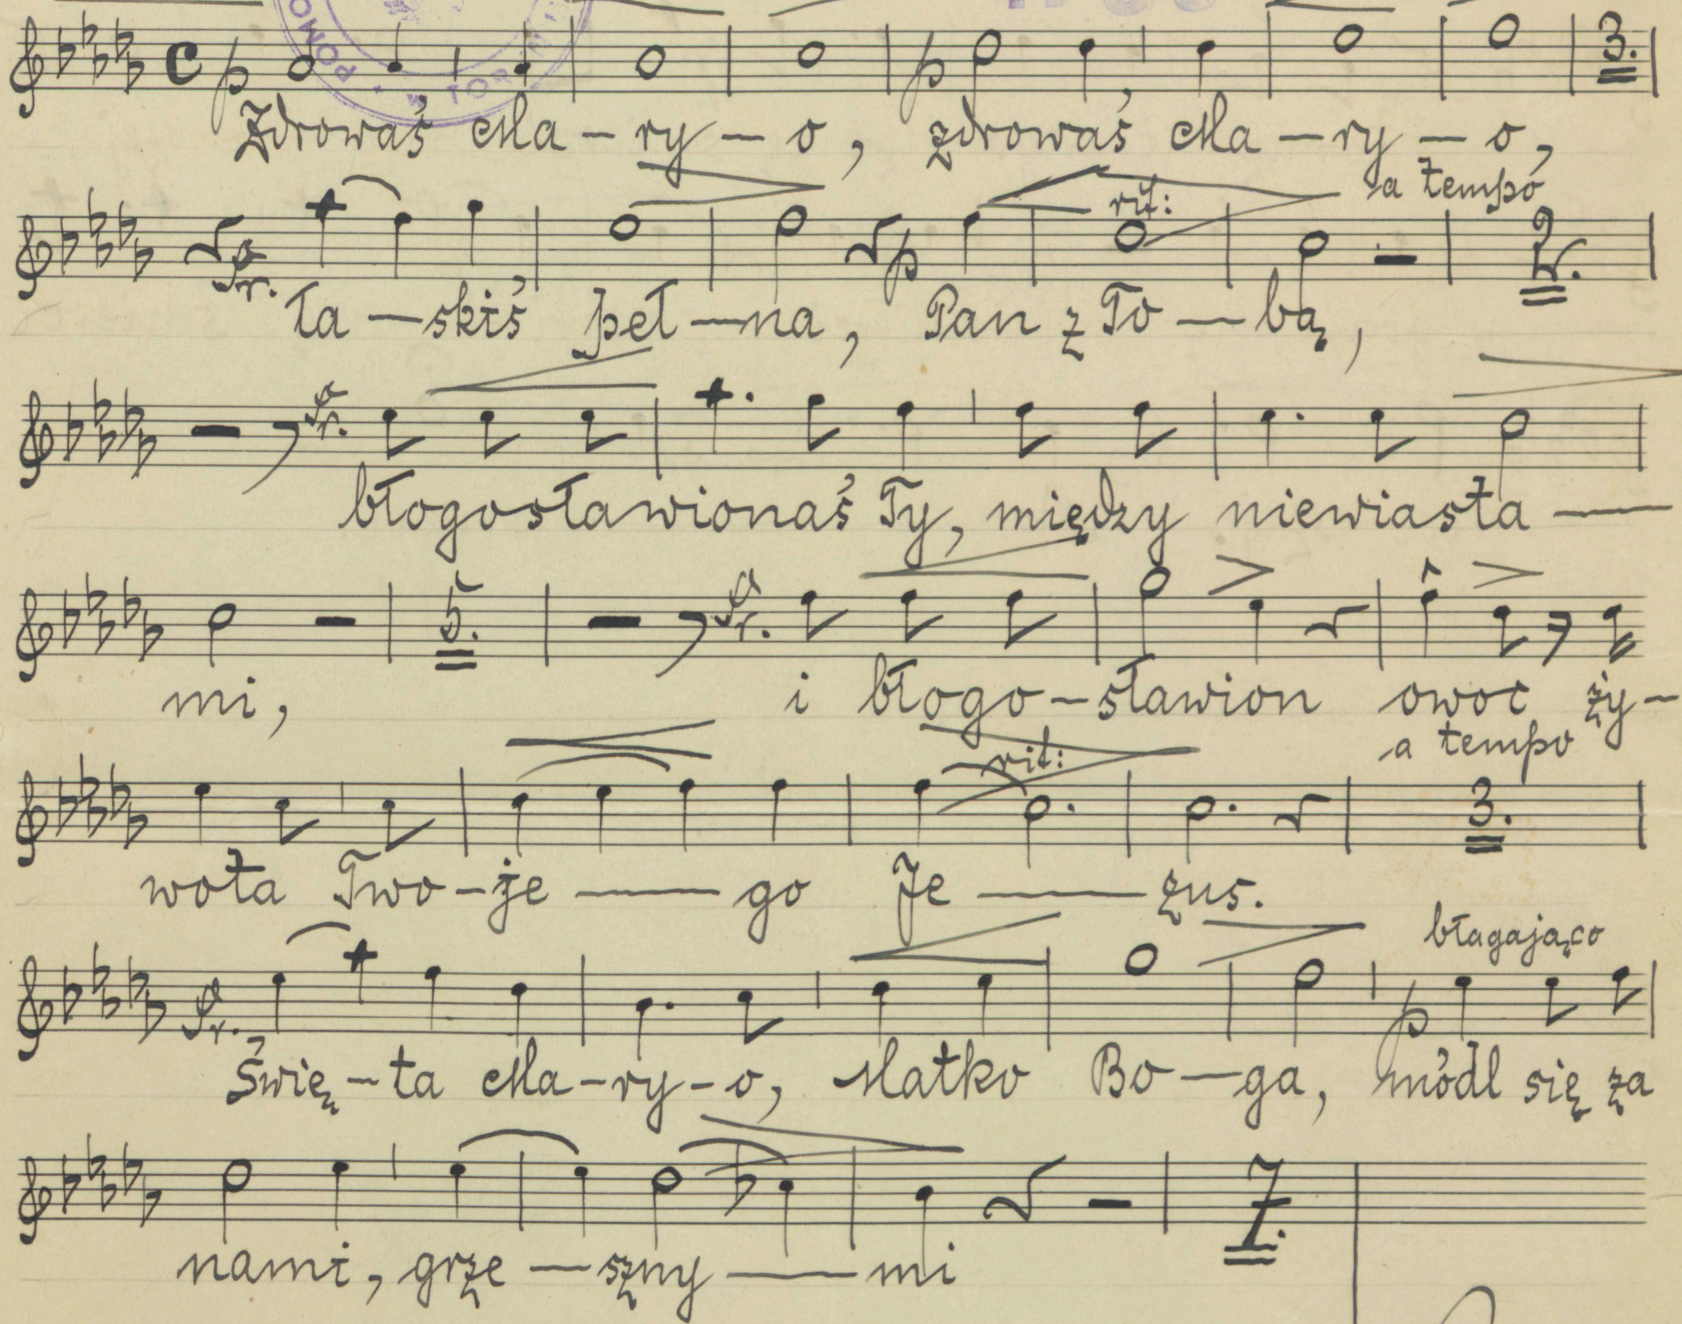 POMO W TORUN
p p 3.
Zdrowaś Ma – ry – o, zdrowaś Ma – ry – o,
rit: a tempo
fr. p 2.
ła – skiś peł – na, Pan z To – bą,
fr.
błogosławionaś Ty, między niewiasta –
5. fr.
mi, i błogo – sławion owoc ży –
rit: a tempo
3.
wota Two – je – go Je – zus.
błagająco
fr. p
Świę – ta Ma – ry – o, Matko Bo – ga, módl się za
7.
nami, grze – szny – mi